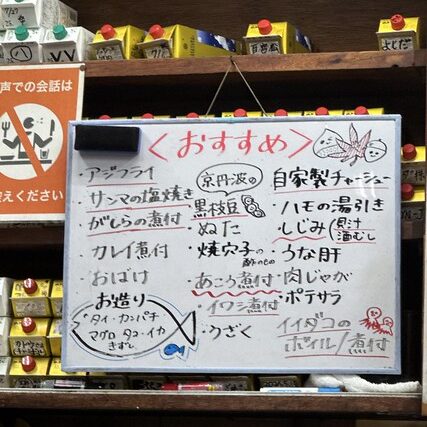 声での会話は
控えください
よしだ
<おすすめ>
・アジフライ
・サンマの塩焼き
・がしらの煮付
・カレイ煮付
・おばけ
お造り
タイ・カンパチ
マグロ タコ・イカ
きずし
京丹波の
黒枝豆
・ぬた
・焼穴子の
酢のもの
・あこう煮付
・イワシ煮付
・うざく
自家製チャーシュー
・ハモの湯引き
・しじみ(貝汁
酒むし
・うな肝
・肉じゃが
・ポテサラ
イイダコの
ボイル/煮付